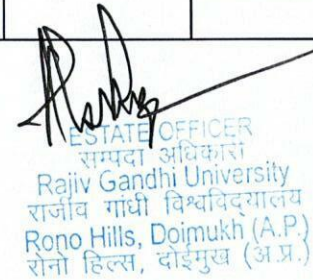 ESTATE OFFICER
सम्पदा अधिकारी
Rajiv Gandhi University
राजीव गांधी विश्वविद्यालय
Rono Hills, Doimukh (A.P.)
रोनो हिल्स, दोईमुख (अ.प्र.)